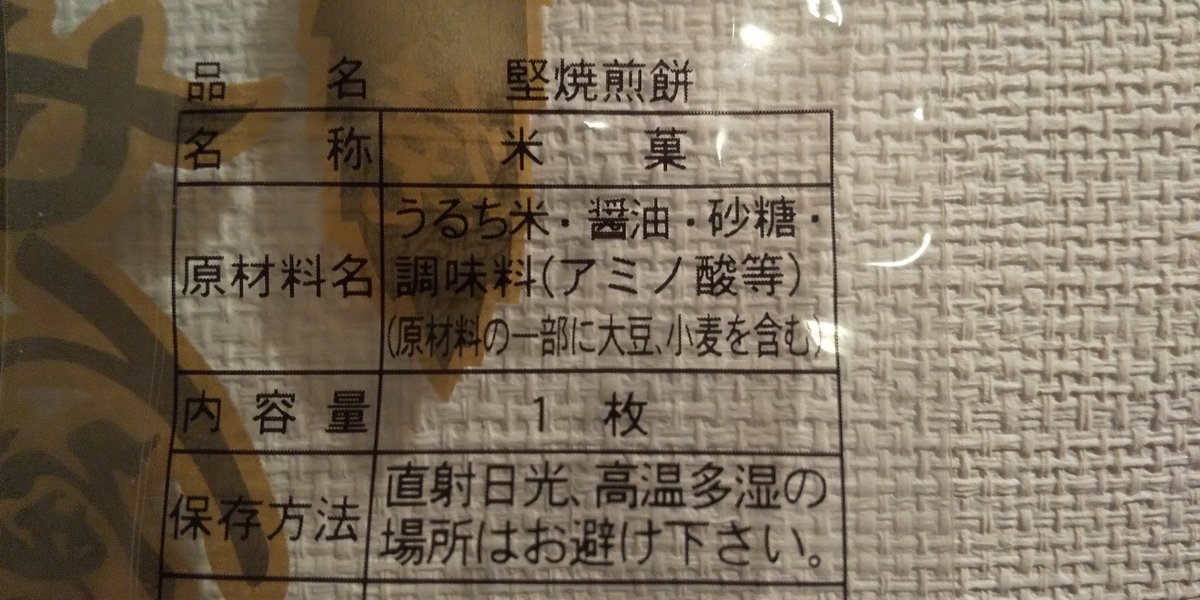 品名 堅焼煎餅
名称 米菓
原材料名 うるち米・醤油・砂糖・
調味料(アミノ酸等)
(原材料の一部に大豆、小麦を含む)
内容量 1枚
保存方法 直射日光、高温多湿の
場所はお避け下さい。